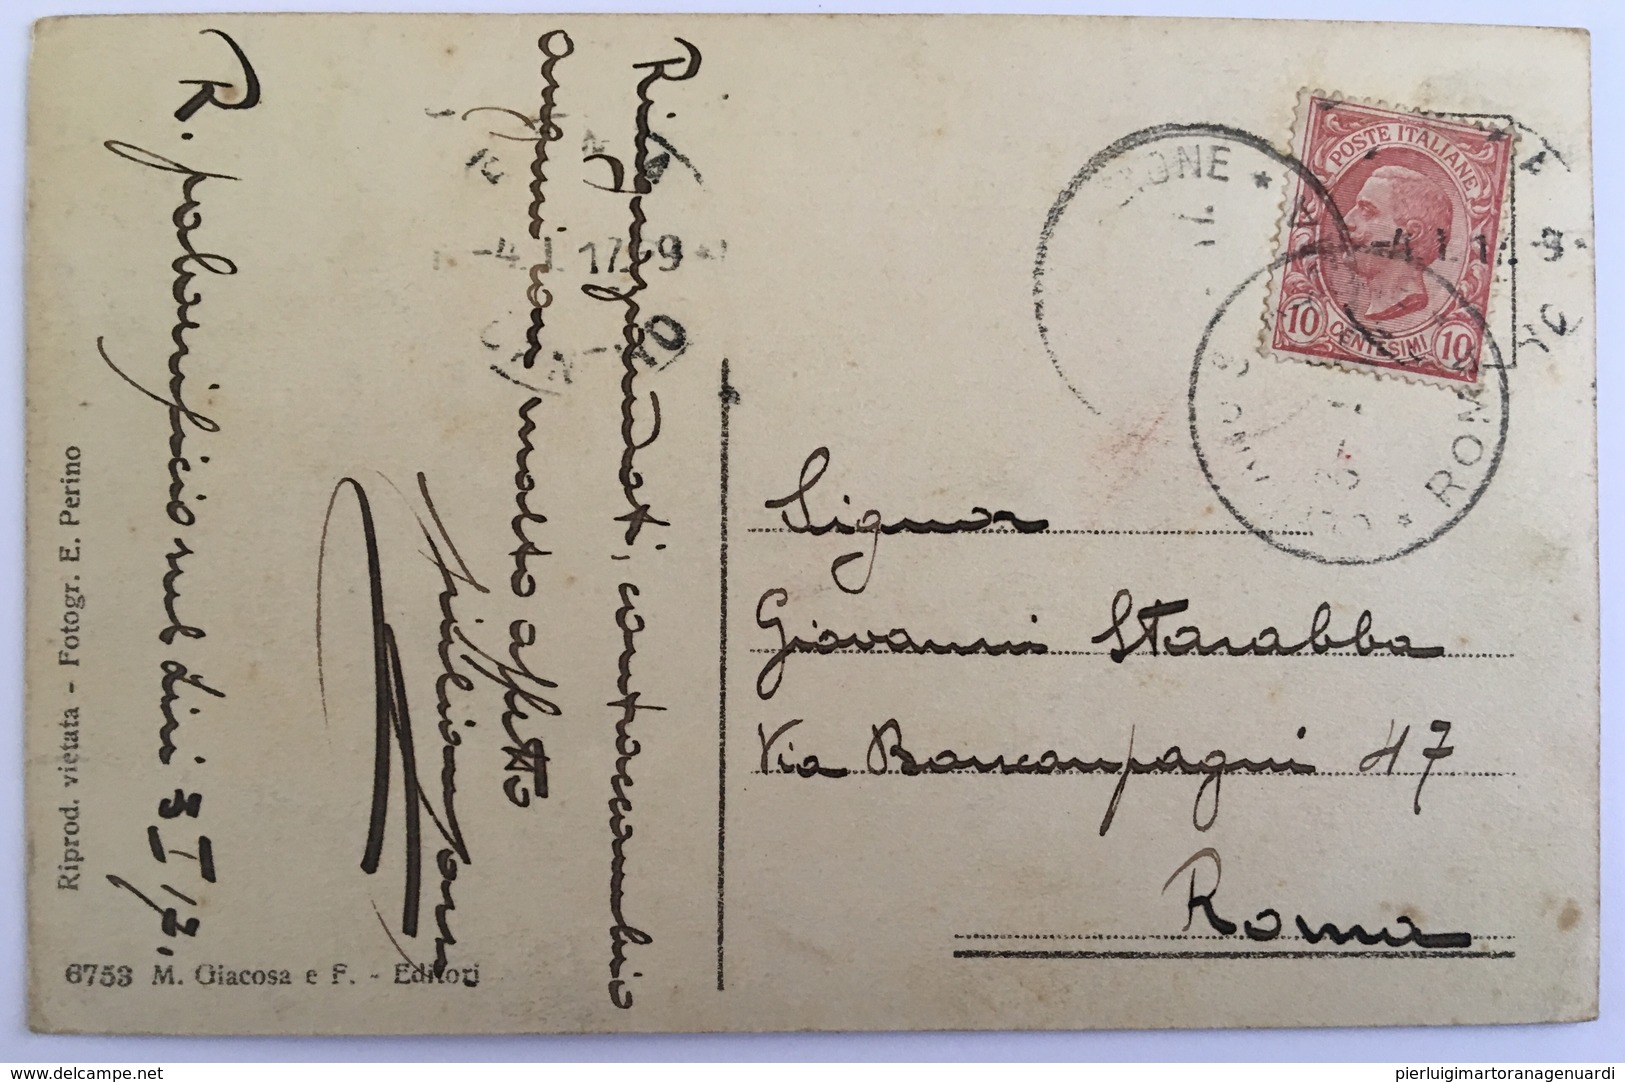 Ringraziandoti, contraccambio
auguri con molto affetto
R. polverificio sul Liri 3 I 17.
Riprod. vietata - Fotogr. E. Perino
6753 M. Giacosa e F. - Editori
-4.1.17. 9
POSTE ITALIANE
10 CENTESIMI 10
-4.1.17. 9
ROMA
Signor
Giovanni Starabba
Via Boncompagni 47
Roma
www.delcampe.net
pierluigimartoranagenuardi